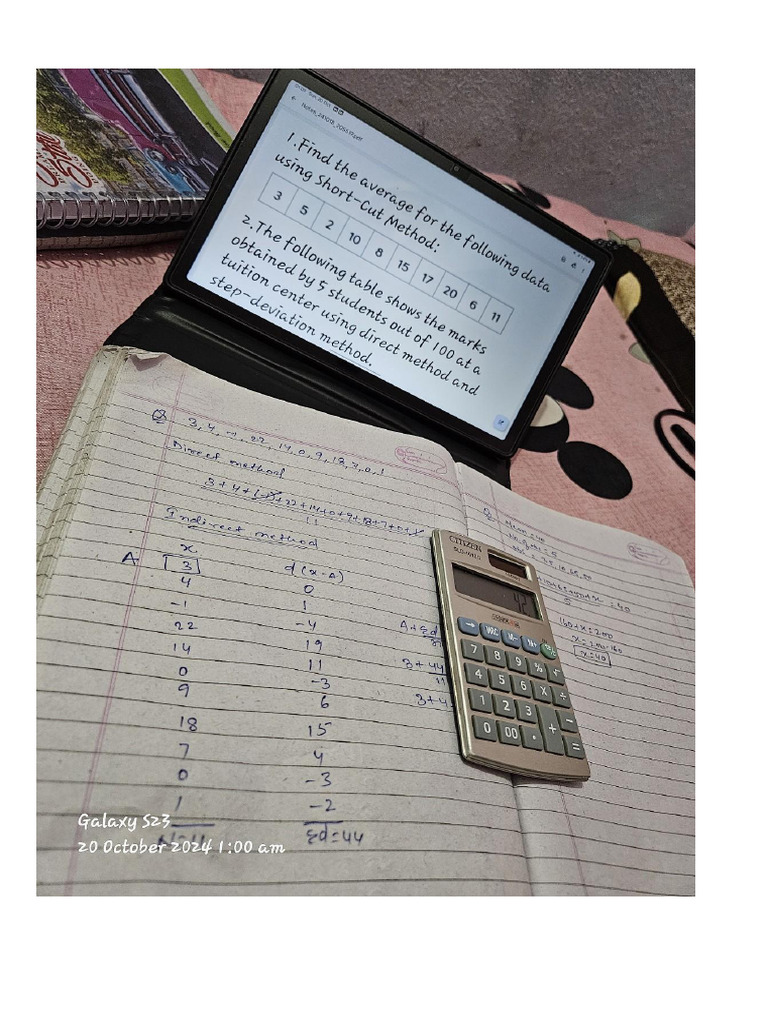 Notes_241019_205519.pdf
1.Find the average for the following data
using Short-Cut Method:
3 5 2 10 8 15 17 20 6 11
2.The following table shows the marks
obtained by 5 students out of 100 at a
tuition center using direct method and
step-deviation method.
Q 3, 4, -1, 22, 14, 0, 9, 18, 7, 0, 1
Direct method
3+4+(-1)+22+14+0+9+18+7+0+1
11
Indirect method
x d(x-A)
A 3 0
4 1
-1 -4
22 19
14 11
0 -3
9 6
18 15
7 4
0 -3
1 -2
N=11 Σd=44
A+Σd
3+44
11
3+4
Q Mean=40
=40
160+x=200
x=200-160
x=40
CITIZEN
42
→ MRC M- M+
7 8 9 % √
4 5 6 X ÷
1 2 3 + -
0 00 . =
Galaxy S23
20 October 2024 1:00 am